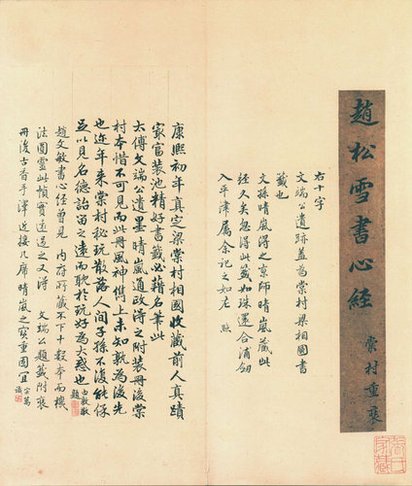 趙松雪書心經
棠村重裝
右十字
文端公遺跡蓋為棠村梁相國書
籤也
文孫晴嵐得之京師晴嵐藏此
經久矣忽得此籤如珠還合浦劍
入平津属余記之如左
康熙初年真定梁棠村相國收藏前人真蹟
最富裝池精好書籤必藉名筆此
太傅文端公遺墨晴嵐道政得之附裝冊後棠
村本惜不可見而此冊風神雋上未知孰為後先
也近年来棠村秘玩散落人間子孫不復能保
足以見名德詒留之遠而耽於玩好為大惑也
趙文敏書心經曽見
內府所藏不下十數本而機
法圓靈此幀實遠過之又得
文端公題籤附裝
冊後古香手澤近接几席晴嵐之寶重固宜